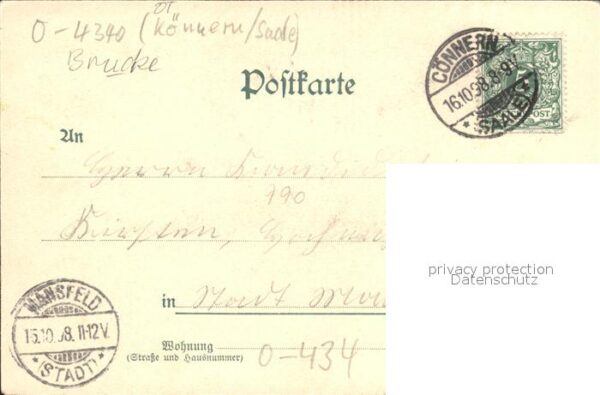 O-4340 (Könnern/Saale)
Brucke
Postkarte
CÖNNERN
16.10.98.8-9V.
*(SAALE)*
POST
An
Herrn
190
Kirsten,
privacy protection
Datenschutz
MANSFELD
15.10.98.11-12V.
*(STADT)*
in Stadt
Wohnung
(Straße und Hausnummer)
O-434